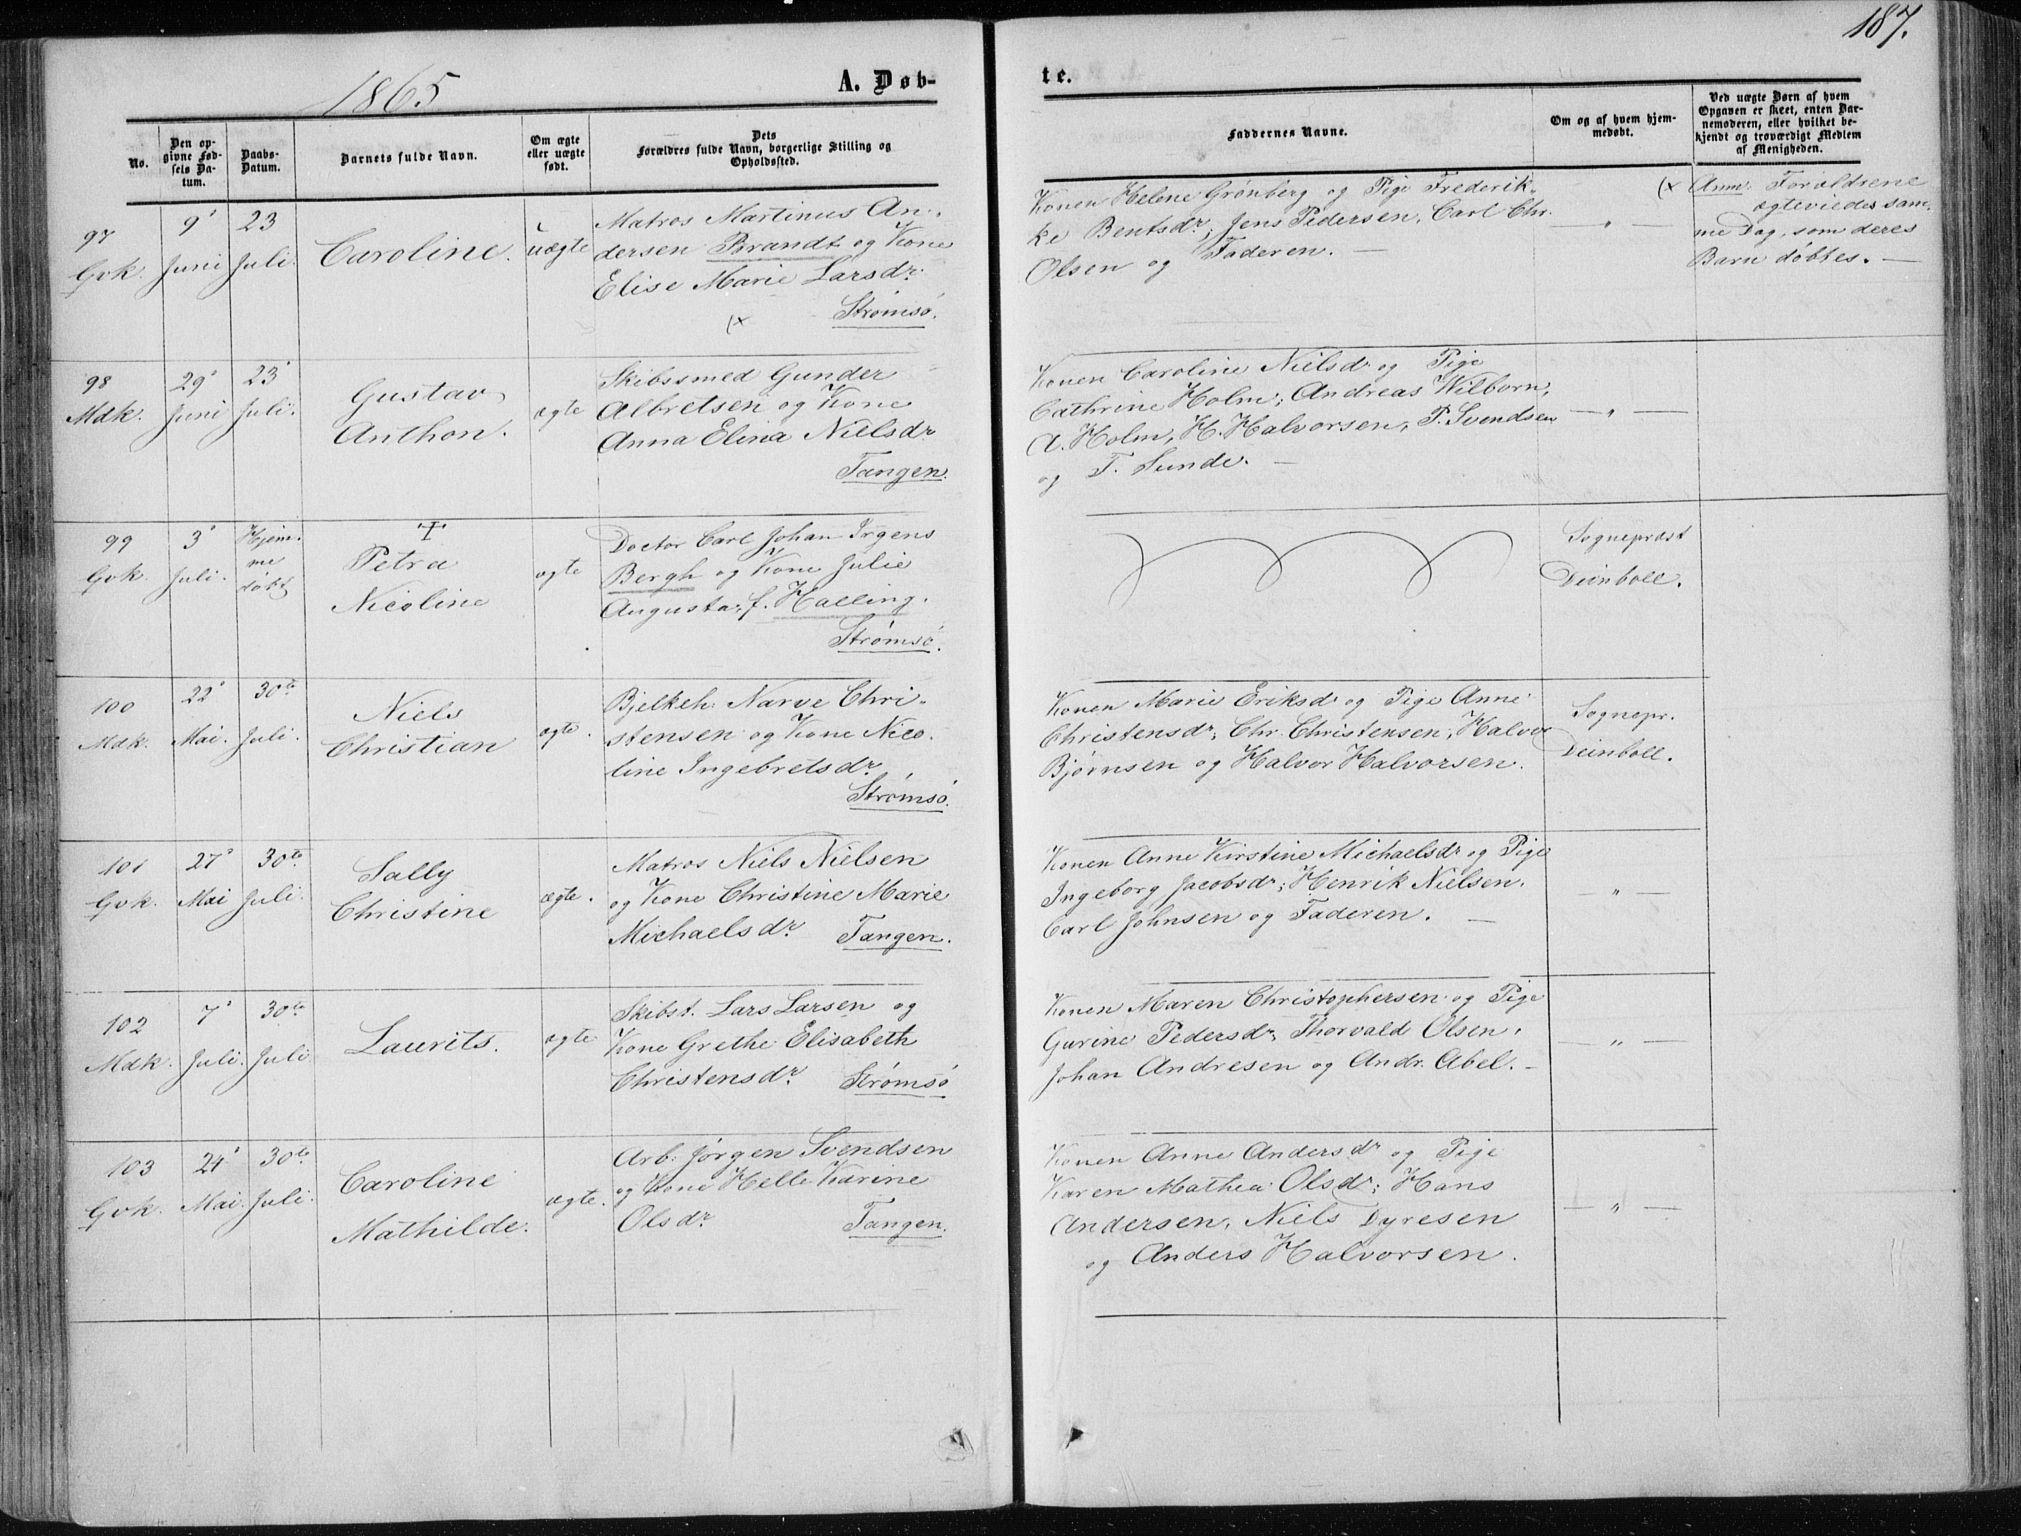 187.
1865
A. Døb-
te.
No.
Den opgivne Fødsels Datum.
Daabs-Datum.
Barnets fulde Navn.
Om ægte eller uægte født.
Dets Forældres fulde Navn, borgerlige Stilling og Opholdssted.
Faddernes Navne.
Om og af hvem hjemmedøbt.
Ved uægte Børn af hvem Opgaven er skeet, enten Barnemoderen, eller hvilket bekjendt og troværdigt Medlem af Menigheden.
97
Gvk.
9'
Juni
23
Juli.
Caroline.
uægte
Matros Martinus An-
dersen Brandt og Kone
Elise Marie Larsdr.
(x
Strømsö.
Konen Helene Grønberg og Pige Frederik-
ke Bentsdr; Jens Pedersen, Carl Chr.
Olsen og Faderen. —
— " —
(x Anm. Forældrene
ægteviedes sam-
me Dag, som deres
Barn døbtes. —
98
Mdk.
29'
Juni
23'
Juli.
Gustav
Anthon.
ægte
Skibssmed Gunder
Albretsen og Kone
Anna Elina Nielsdr
Tangen.
Konen Caroline Nielsdr og Pige
Cathrine Holm; Andreas Wilborn,
A. Holm, H. Halvorsen, P. Svendsen
og T. Sunde. —
— " —
99
Gvk.
3'
Juli.
Hjem-
me
døbt
Petra
Nicoline
ægte
Doctor Carl Johan Irgens
Bergh og Kone Julie
Augusta, f. Halling.
Strømsö.
Sognepræst
Deinboll.
100
Mdk.
22'
Mai.
30te
Juli.
Niels
Christian
ægte.
Bjelkeh. Narve Chri-
stensen og Kone Nico-
line Ingebretsdr.
Strømsö.
Konen Marie Eriksdr og Pige Anne
Christensdr; Chr. Christensen, Halvor
Bjørnsen og Halvor Halvorsen.
Sognepr.
Deinboll.
101
Gvk.
27'
Mai
30te
Juli.
Sally
Christine
ægte.
Matros Niels Nielsen
og Kone Christine Marie
Michaelsdr. Tangen.
Konen Anne Kirstine Michaelsdr og Pige
Ingeborg Jacobsdr; Henrik Nielsen,
Carl Johnsen og Faderen. —
" —
102
Mdk.
7'
Juli.
30te
Juli
Laurits.
ægte
Skibst. Lars Larsen og
Kone Grethe Elisabeth
Christensdr. Strømsö
Konen Maren Christophersen og Pige
Gurine Pedersdr, Thorvald Olsen,
Johan Andresen og Andr. Abel. —
— " —
103
Gvk.
24'
Mai.
30te
Juli.
Caroline
Mathilde.
ægte.
Arb. Jørgen Svendsen
og Kone Helle Karine
Olsdr. Tangen.
Konen Anne Andersdr og Pige
Karen Mathea Olsdr; Hans
Andersen, Niels Dyresen
og Anders Halvorsen.
— " —